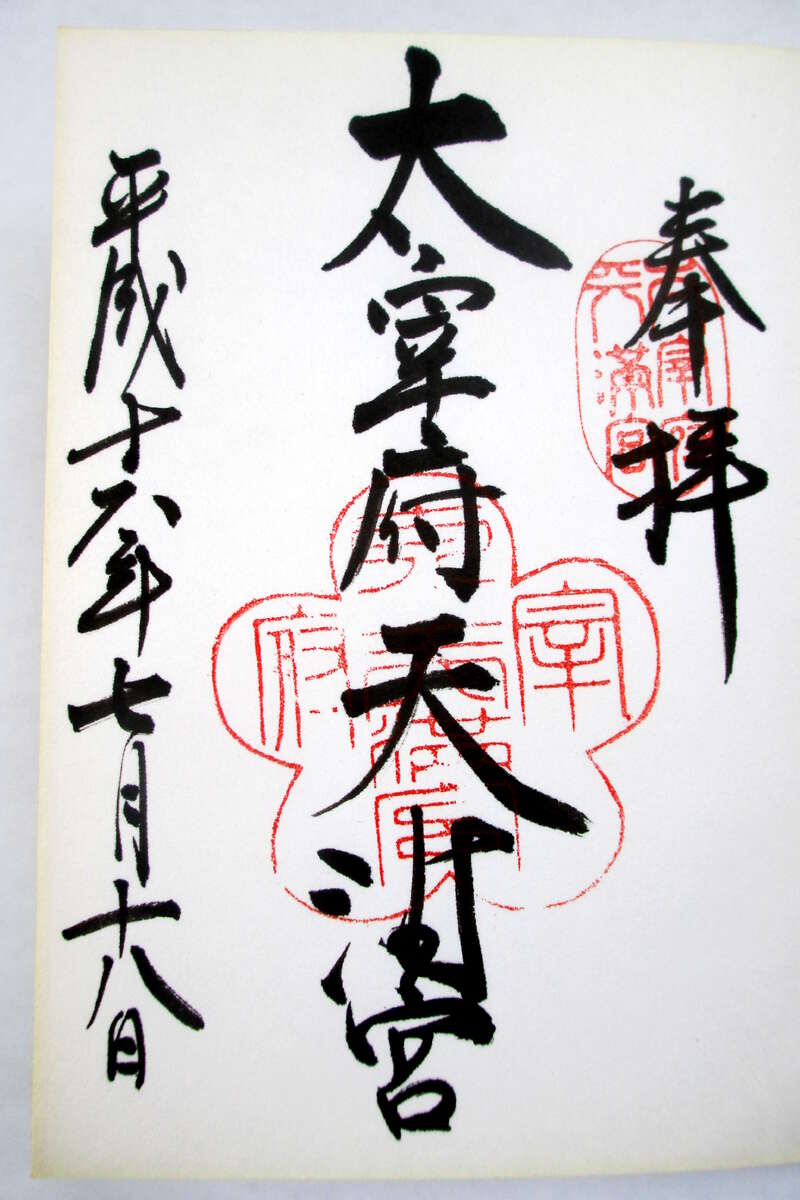 奉拝
太宰府天満宮
太宰府
天満宮
太宰府
天満宮
平成十六年七月十八日